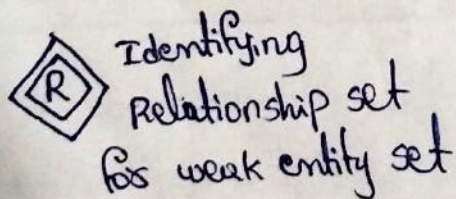 R
Identifying
Relationship set
for weak entity set